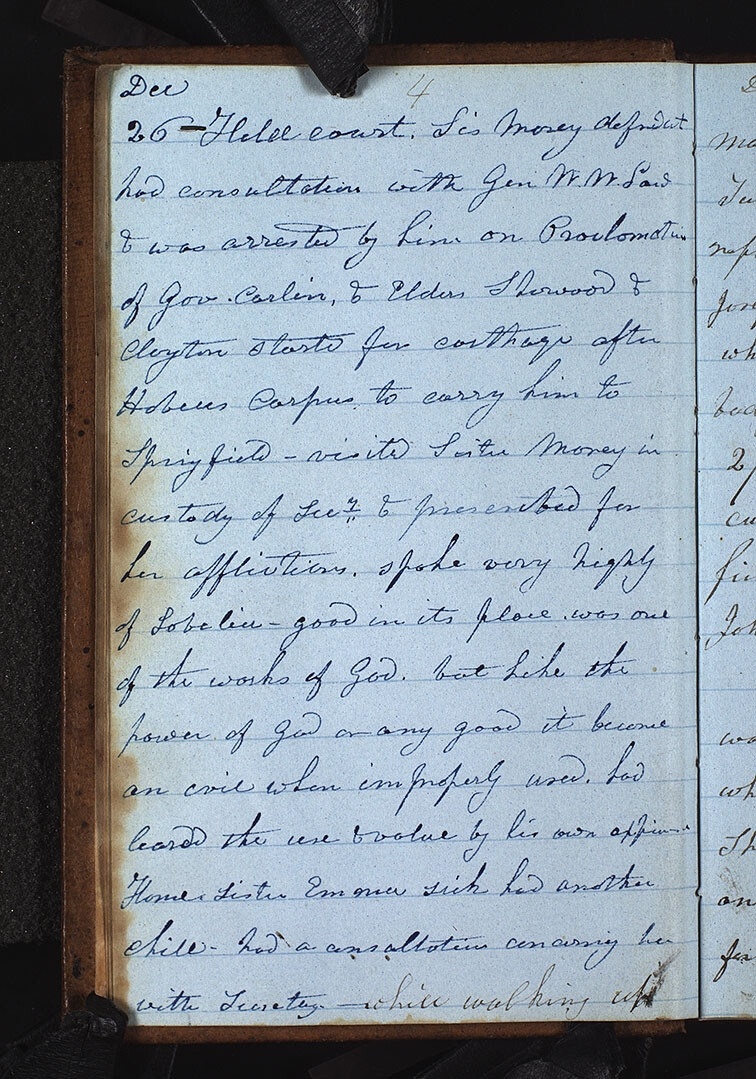 Dec
4
26 - Held court. Sis Morey defndat
had consultation with Gen W. W. Law
& was arrested by him on Proclomation
of Gov. Carlin, & Elders Sherwood &
Clayton starts for carthage after
Habeus Corpus to carry him to
Springfield - visited Sister Morey in
custody of Secy. & prescribed for
her afflictions. spoke very highly
of Lobelia - good in its place. was one
of the works of God. but like the
power of God or any good it become
an evil when improperly used. had
learnd the use & value by his own
Home. Sister Emma sick had another
chill - had a consultation concerning her
with Secretay - while walking up
D
ma
wh
2
Joh
wa
wh
an